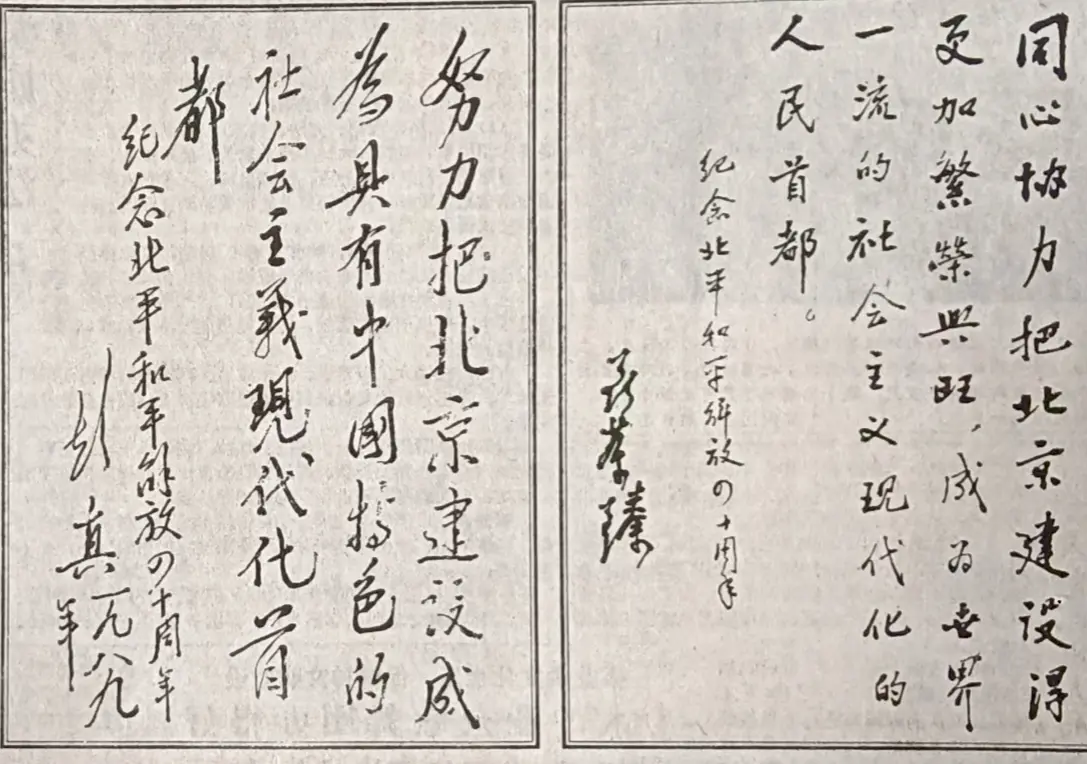 同心协力把北京建设得
更加繁荣兴旺，成为世界
一流的社会主义现代化的
人民首都。
纪念北平和平解放四十周年
聂荣臻
努力把北京建设成
為具有中國特色的
社会主義現代化首
都
纪念北平和平解放四十周年
彭真一九八九
年